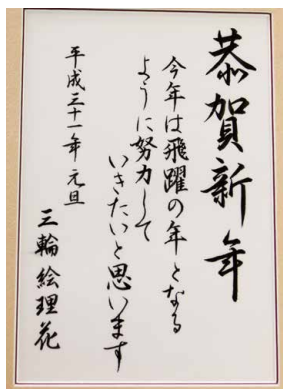 恭賀新年
今年は飛躍の年となる
ように努力して
いきたいと思います
平成三十一年 元旦
三輪絵理花